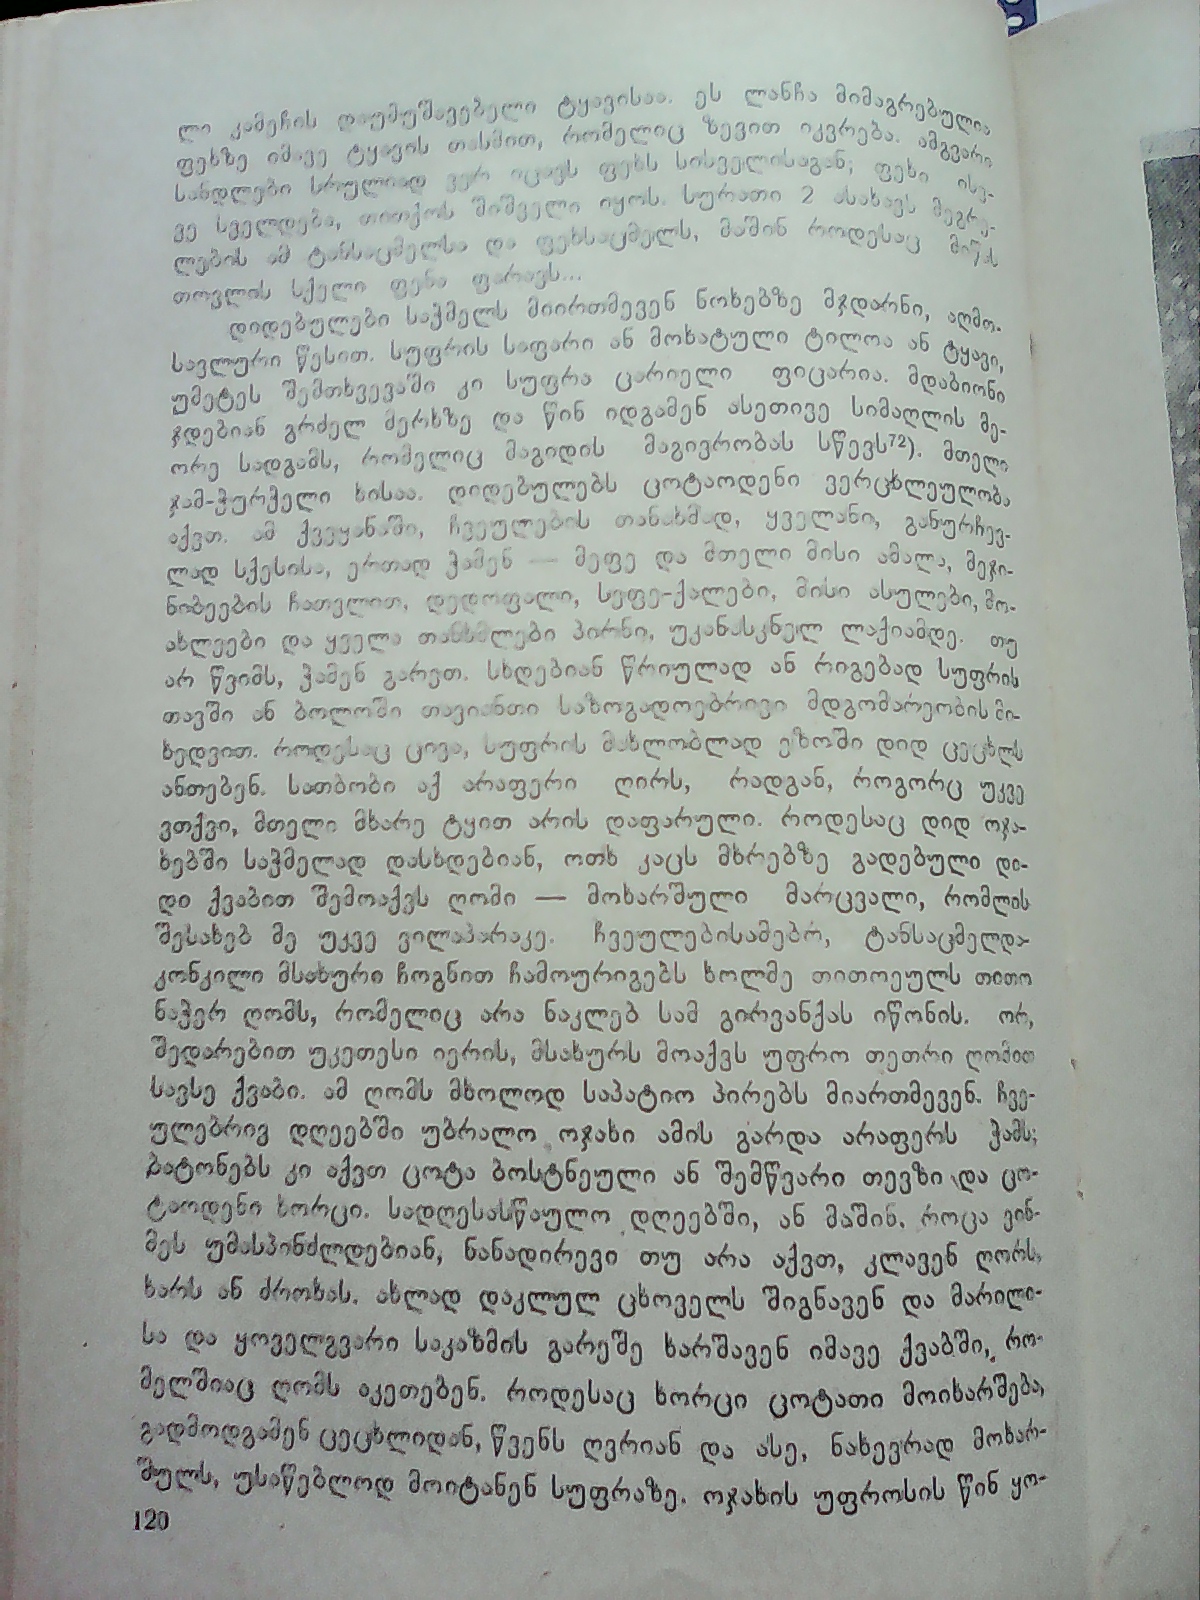 ლი კამეჩის დაუმუშავებელი ტყავისაა. ეს ლანჩა მიმაგრებულია
ფეხზე იმავე ტყავის თასმით, რომელიც ზევით იკვრება. ამგვარი
სანდლები სრულიად ვერ იცავს ფეხს სისველისაგან; ფეხი ისე-
ვე სველდება, თითქოს შიშველი იყოს. სურათი 2 ასახავს მეგრე-
ლების ამ ტანსაცმელსა და ფეხსაცმელს, მაშინ როდესაც მიწას
თოვლის სქელი ფენა ფარავს...
დიდებულები საჭმელს მიირთმევენ ნოხებზე მჯდარნი, აღმო-
სავლური წესით. სუფრის საფარი ან მოხატული ტილოა ან ტყავი,
უმეტეს შემთხვევაში კი სუფრა ცარიელი ფიცარია. მდაბიონი
ჯდებიან გრძელ მერხზე და წინ იდგამენ ასეთივე სიმაღლის მე-
ორე სადგამს, რომელიც მაგიდის მაგივრობას სწევს⁷²). მთელი
ჯამ-ჭურჭელი ხისაა. დიდებულებს ცოტაოდენი ვერცხლეულობა
აქვთ. ამ ქვეყანაში, ჩვეულების თანახმად, ყველანი, განურჩევ-
ლად სქესისა, ერთად ჭამენ — მეფე და მთელი მისი ამალა, მეჯი-
ნიბეების ჩათვლით, დედოფალი, სეფე-ქალები, მისი ასულები, მო-
ახლეები და ყველა თანმხლები პირნი, უკანასკნელ ლაქიამდე. თუ
არ წვიმს, ჭამენ გარეთ. სხდებიან წრიულად ან რიგებად სუფრის
თავში ან ბოლოში თავიანთი საზოგადოებრივი მდგომარეობის მი-
ხედვით. როდესაც ცივა, სუფრის მახლობლად ეზოში დიდ ცეცხლს
ანთებენ. სათბობი აქ არაფერი ღირს, რადგან, როგორც უკვე
ვთქვი, მთელი მხარე ტყით არის დაფარული. როდესაც დიდ ოჯა-
ხებში საჭმელად დასხდებიან, ოთხ კაცს მხრებზე გადებული დი-
დი ქვაბით შემოაქვს ღომი — მოხარშული მარცვალი, რომლის
შესახებ მე უკვე ვილაპარაკე. ჩვეულებისამებრ, ტანსაცმელდა-
კონკილი მსახური ჩოგნით ჩამოურიგებს ხოლმე თითოეულს თითო
ნაჭერ ღომს, რომელიც არა ნაკლებ სამ გირვანქას იწონის. ორ,
შედარებით უკეთესი იერის, მსახურს მოაქვს უფრო თეთრი ღომით
სავსე ქვაბი. ამ ღომს მხოლოდ საპატიო პირებს მიართმევენ. ჩვე-
ულებრივ დღეებში უბრალო ოჯახი ამის გარდა არაფერს ჭამს;
ბატონებს კი აქვთ ცოტა ბოსტნეული ან შემწვარი თევზი და ცო-
ტაოდენი ხორცი. სადღესასწაულო დღეებში, ან მაშინ, როცა ვინ-
მეს უმასპინძლდებიან, ნანადირევი თუ არა აქვთ, კლავენ ღორს,
ხარს ან ძროხას. ახლად დაკლულ ცხოველს შიგნავენ და მარილი-
სა და ყოველგვარი საკაზმის გარეშე ხარშავენ იმავე ქვაბში, რო-
მელშიაც ღომს აკეთებენ. როდესაც ხორცი ცოტათი მოიხარშება,
გადმოდგამენ ცეცხლიდან, წვენს ღვრიან და ასე, ნახევრად მოხარ-
შულს, უსაწებლოდ მოიტანენ სუფრაზე. ოჯახის უფროსის წინ ყო-
120